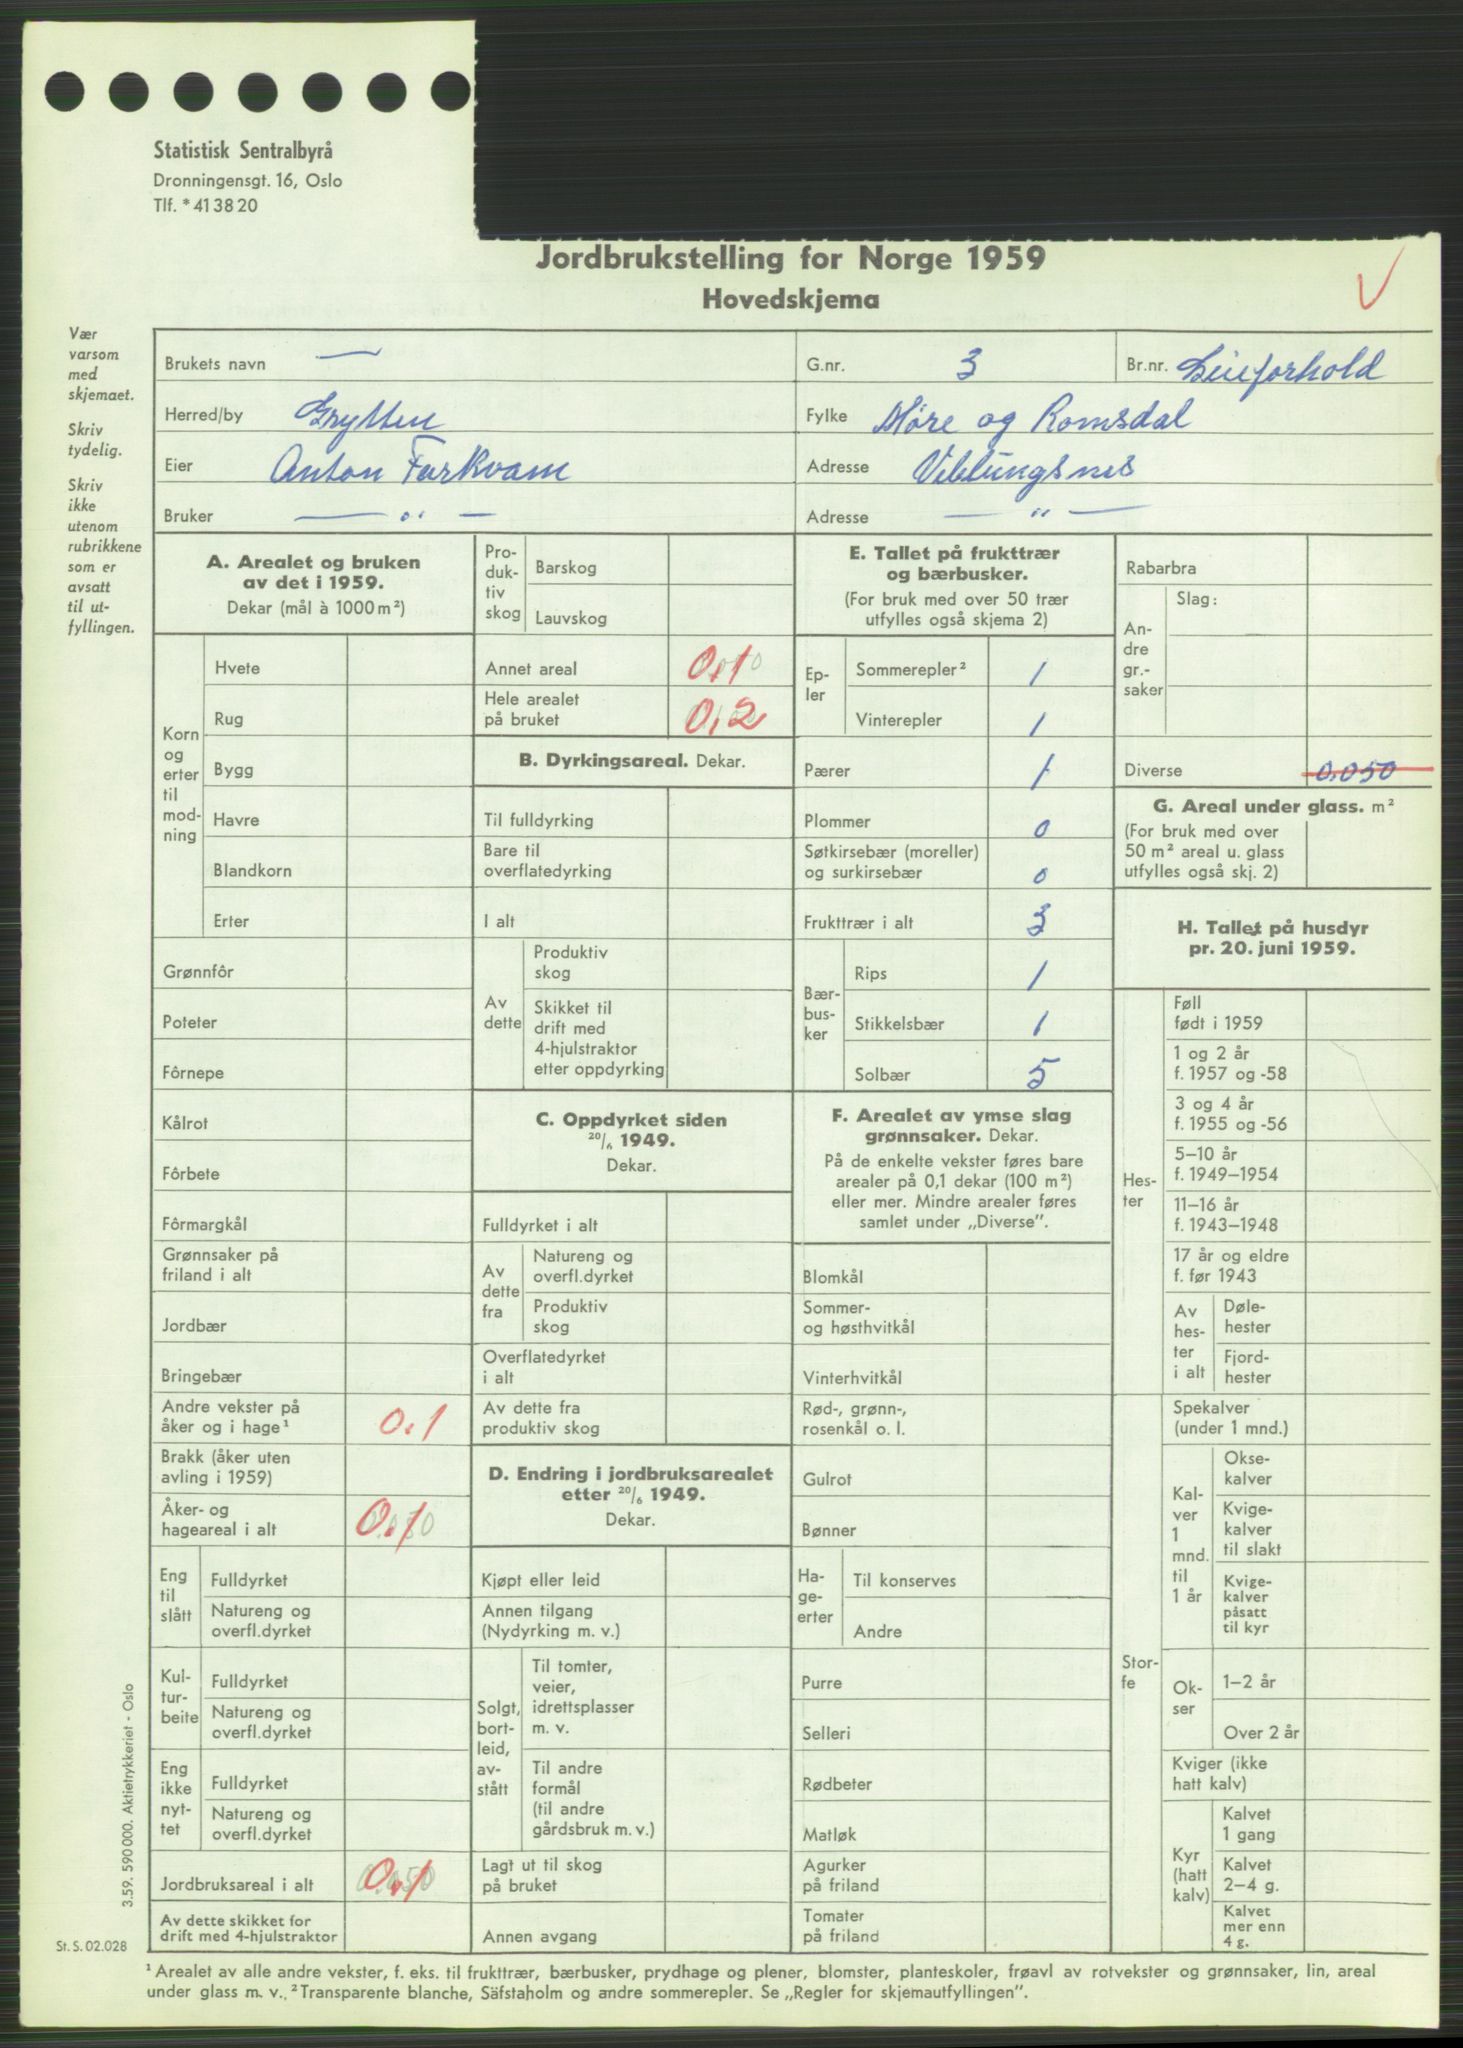 Statistisk Sentralbyrå
Dronningensgt. 16, Oslo
Tlf. * 41 38 20
Jordbrukstelling for Norge 1959
Hovedskjema
Vær
varsom
med
skjemaet.
Skriv
tydelig.
Skriv
ikke
utenom
rubrikkene
som er
avsatt
til ut-
fyllingen.
Brukets navn —
G.nr. 3
Br.nr. Leieforhold
Herred/by Grytten
Fylke Møre og Romsdal
Eier Anton Farkvam
Adresse Veblungsnes
Bruker — " —
Adresse — " —
A. Arealet og bruken
av det i 1959.
Dekar (mål à 1000 m²)
Korn
og
erter
til
mod-
ning
Hvete
Rug
Bygg
Havre
Blandkorn
Erter
Grønnfôr
Poteter
Fôrnepe
Kålrot
Fôrbete
Fôrmargkål
Grønnsaker på
friland i alt
Jordbær
Bringebær
Andre vekster på
åker og i hage¹ 0.1
Brakk (åker uten
avling i 1959)
Åker- og
hageareal i alt 0.1
Eng
til
slått
Fulldyrket
Natureng og
overfl.dyrket
Kul-
tur-
beite
Fulldyrket
Natureng og
overfl.dyrket
Eng
ikke
nyt-
tet
Fulldyrket
Natureng og
overfl.dyrket
Jordbruksareal i alt 0.1
Av dette skikket for
drift med 4-hjulstraktor
Pro-
duk-
tiv
skog
Barskog
Lauvskog
Annet areal 0.1
Hele arealet
på bruket 0.2
B. Dyrkingsareal. Dekar.
Til fulldyrking
Bare til
overflatedyrking
I alt
Av
dette
Produktiv
skog
Skikket til
drift med
4-hjulstraktor
etter oppdyrking
C. Oppdyrket siden
20/6 1949.
Dekar.
Fulldyrket i alt
Av
dette
fra
Natureng og
overfl.dyrket
Produktiv
skog
Overflatedyrket
i alt
Av dette fra
produktiv skog
D. Endring i jordbruksarealet
etter 20/6 1949.
Dekar.
Kjøpt eller leid
Annen tilgang
(Nydyrking m. v.)
Solgt,
bort-
leid,
av-
stått
Til tomter,
veier,
idrettsplasser
m. v.
Til andre
formål
(til andre
gårdsbruk m. v.)
Lagt ut til skog
på bruket
Annen avgang
E. Tallet på frukttrær
og bærbusker.
(For bruk med over 50 trær
utfylles også skjema 2)
Ep-
ler
Sommerepler² 1
Vinterepler 1
Pærer 1
Plommer 0
Søtkirsebær (moreller)
og surkirsebær 0
Frukttrær i alt 3
Bær-
bus-
ker
Rips 1
Stikkelsbær 1
Solbær 5
F. Arealet av ymse slag
grønnsaker. Dekar.
På de enkelte vekster føres bare
arealer på 0,1 dekar (100 m²)
eller mer. Mindre arealer føres
samlet under „Diverse”.
Blomkål
Sommer-
og høsthvitkål
Vinterhvitkål
Rød-, grønn-,
rosenkål o. l.
Gulrot
Bønner
Ha-
ge-
erter
Til konserves
Andre
Purre
Selleri
Rødbeter
Matløk
Agurker
på friland
Tomater
på friland
Rabarbra
An-
dre
gr.-
saker
Slag:
Diverse 0.050
G. Areal under glass. m²
(For bruk med over
50 m² areal u. glass
utfylles også skj. 2)
H. Tallet på husdyr
pr. 20. juni 1959.
Hes-
ter
Føll
født i 1959
1 og 2 år
f. 1957 og -58
3 og 4 år
f. 1955 og -56
5–10 år
f. 1949–1954
11–16 år
f. 1943–1948
17 år og eldre
f. før 1943
Av
hes-
ter
i alt
Døle-
hester
Fjord-
hester
Stor-
fe
Spekalver
(under 1 mnd.)
Kal-
ver
1
mnd.
til
1 år
Okse-
kalver
Kvige-
kalver
til slakt
Kvige-
kalver
påsatt
til kyr
Ok-
ser
1–2 år
Over 2 år
Kviger (ikke
hatt kalv)
Kyr
(hatt
kalv)
Kalvet
1 gang
Kalvet
2–4 g.
Kalvet
mer enn
4 g.
3.59. 590 000. Aktietrykkeriet - Oslo
St. S. 02.028
¹ Arealet av alle andre vekster, f. eks. til frukttrær, bærbusker, prydhage og plener, blomster, planteskoler, frøavl av rotvekster og grønnsaker, lin, areal
under glass m. v. ² Transparente blanche, Säfstaholm og andre sommerepler. Se „Regler for skjemautfyllingen”.